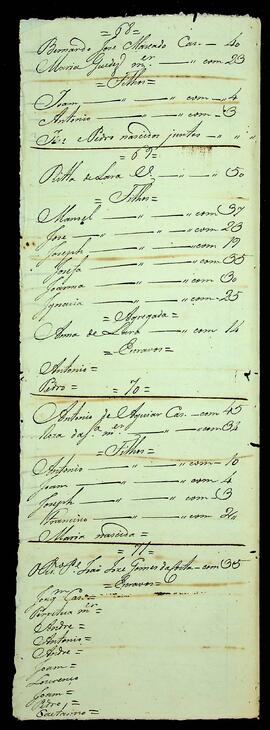 = 68 =
Bernardo Jose Machado Cas. — 40
Maria Guedes m.er — " com 23
= Filhos =
Joam — " — " com — 4
Antonio — " — " com — 3
Jose e Pedro nascidos juntos — " "
= 69 =
Ritta de Lara V.a — " — 50
= Filhos =
Manoel — " — " com 37
Jose — " — " com 23
Joseph — " — " com 19
Josefa — " — " com 35
Joanna — " — " com 30
Ignacia — " — " com 25
= Agregada =
Anna de Lara — " com 14
= Escravos =
Antonio =
Pedro =
= 70 =
Antonio de Aguiar Cas. — com 45
Roza da S.a m.er — " com 38
= Filhos =
Antonio — " — " com — 10
Joam — " — " com — 4
Joseph — " — " com — 3
Francisco — " — " com
Maria nascida =
= 71 =
João Jose Gomes da Costa — com 35
= Escravos =
Joaq.m Cas. =
Perpetua m.er
Andre =
Antonio =
Andre =
Joam =
Lourenço
Joam =
Pedro =
Caetanno =